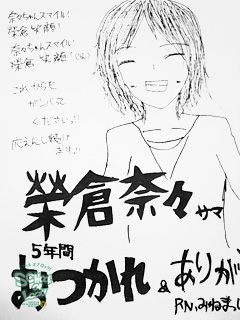 奈々ちゃんスマイル!
榮倉 笑顔!
奈々ちゃんスマイル!
榮倉 笑顔!
これからも
ガンバって
ください!!
応えんし続け
ます!!
榮倉奈々サマ
5年間
おつかれ & ありが
R.N.みねまっ